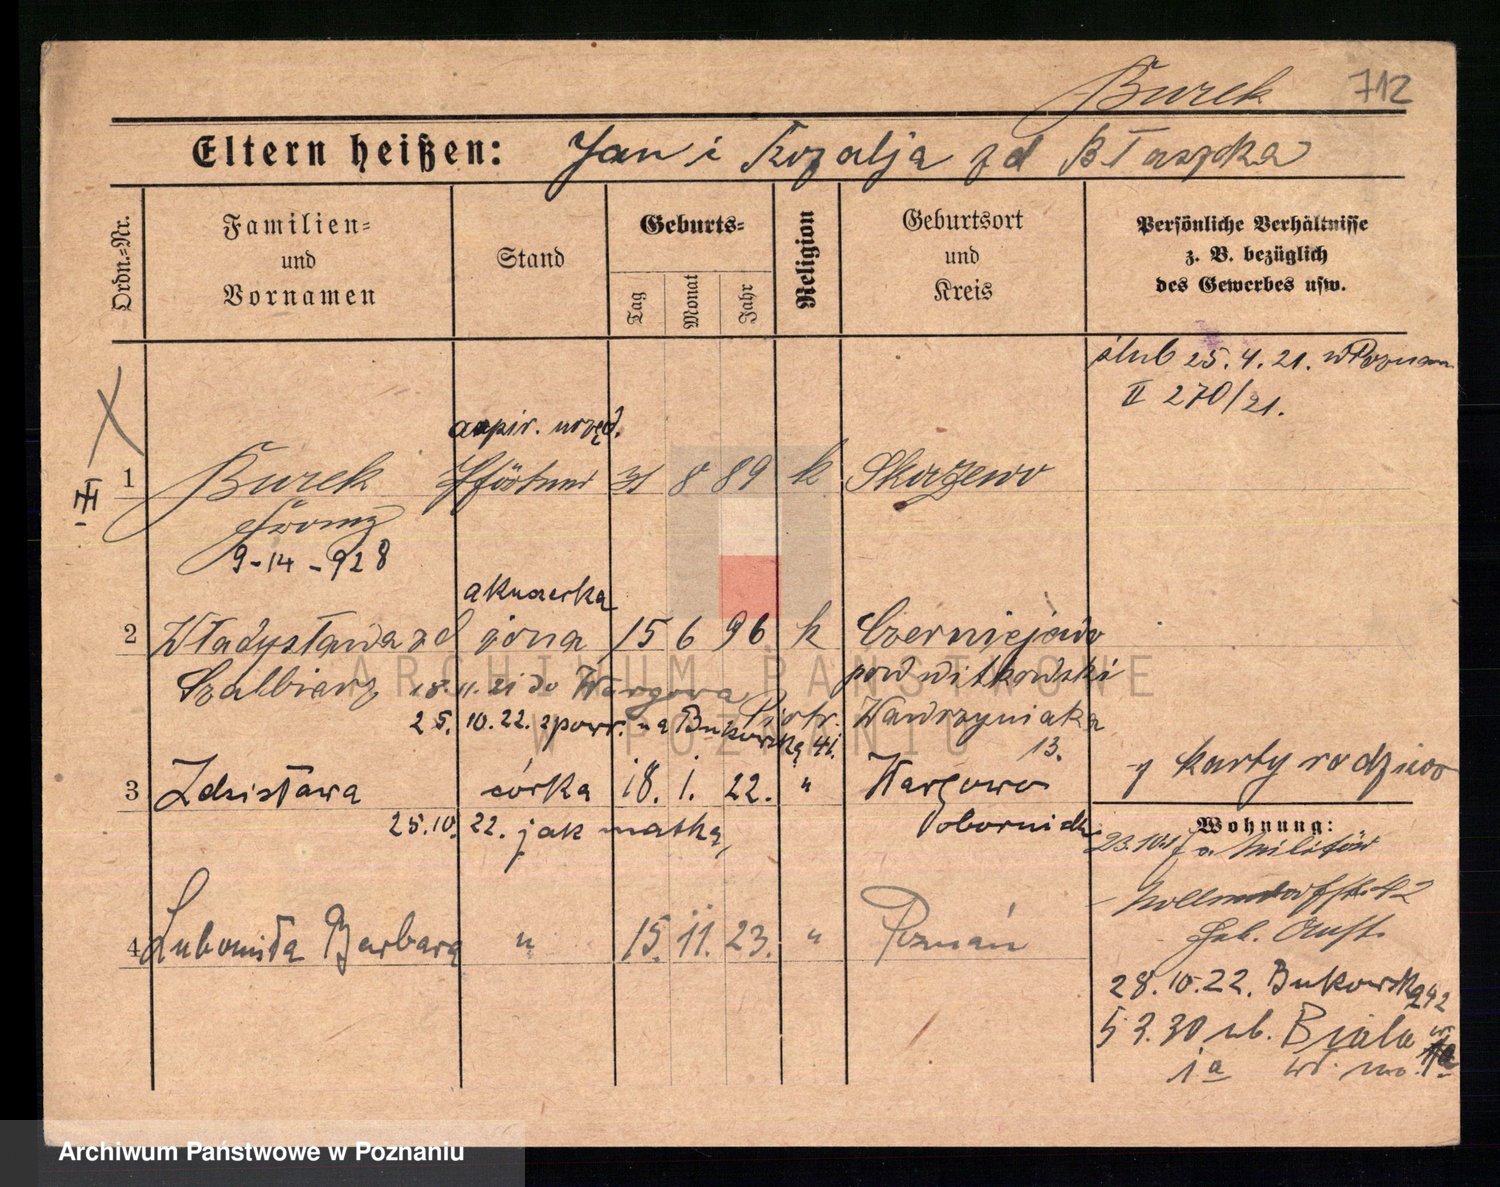 Burek 712
Eltern heißen: Jan i Rozalja zd Błaszka
Ordn.-Nr.
Familien- und Vornamen
Stand
Geburts-
Tag
Monat
Jahr
Religion
Geburtsort und Kreis
Persönliche Verhältnisse
z. B. bezüglich
des Gewerbes usw.
ślub 25.4.21. w Poznan
II 270/21.
aspir. urzęd.
1 Burek Pförtner 31 8 89 k Skorzewo
Franz
9-14-928
akuszerka
2 Władysława zd żona 15 6 96 k Czerniejewo
Szalbierz 18.11.21 do Wargowa pow witkowski
25.10.22. z powr. na Bukowską 41. Piotr. Wawrzyniaka
13.
z karty rodziców
3 Zdzisława córka 18. 1. 22. " Wargowo
25.10.22. jak matka, obornicki
Wohnung:
Militär
Nollendorfstr. 42
4 Lubomiła Barbara " 15. 11. 23. " Poznań
28.10.22. Bukowska 242
5 3.30 ub. Biała
1a
Archiwum Państwowe w Poznaniu
ARCHIWUM PAŃSTWOWE
W POZNANIU